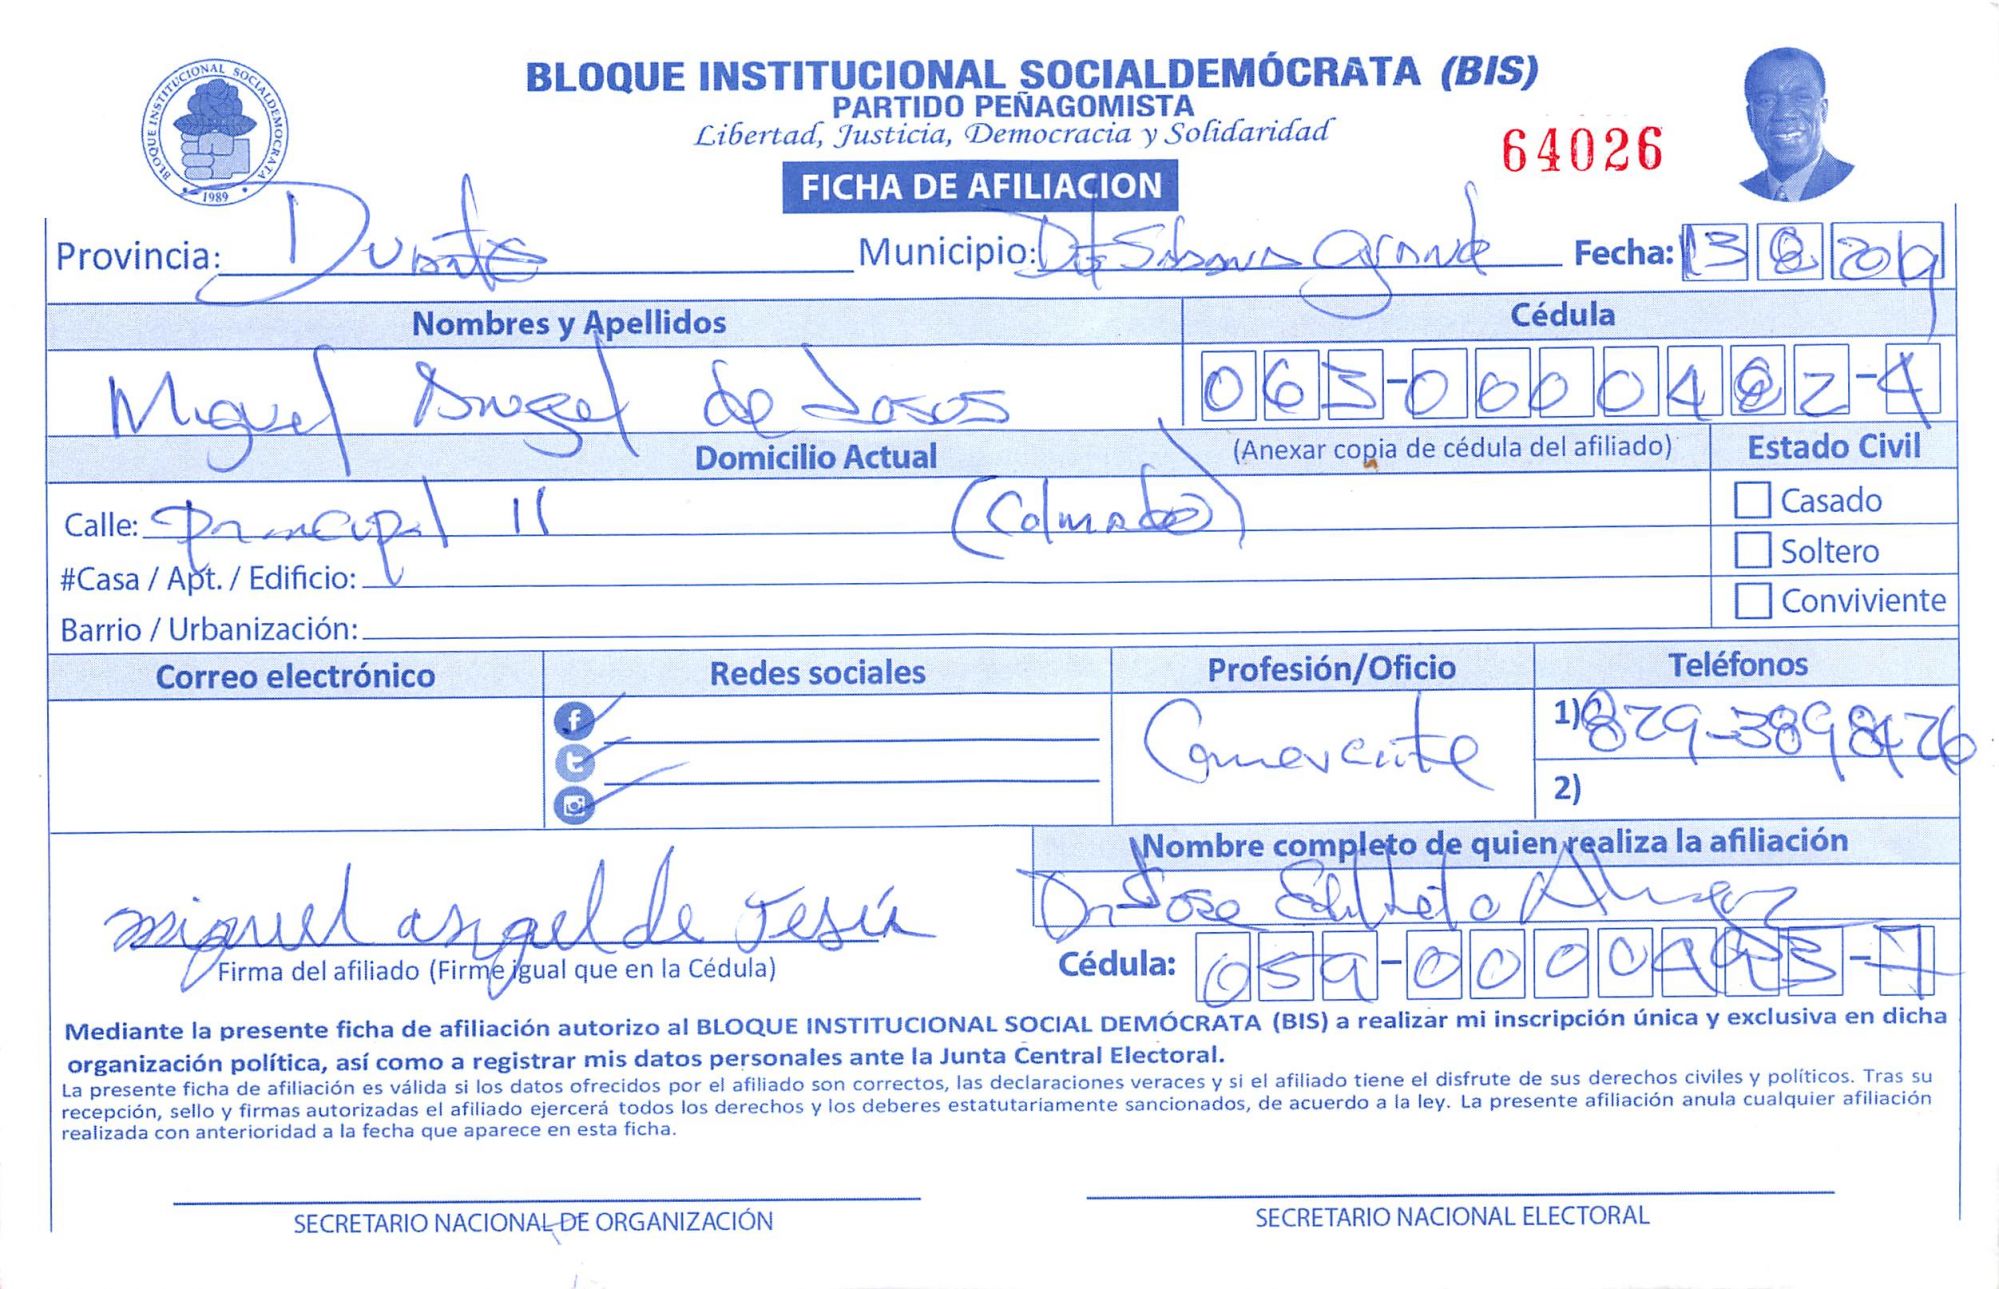 BLOQUE INSTITUCIONAL SOCIALDEMÓCRATA (BIS)
PARTIDO PEÑAGOMISTA
Libertad, Justicia, Democracia y Solidaridad
BLOQUE INSTITUCIONAL SOCIALDEMOCRATA
1989
64026
FICHA DE AFILIACION
Provincia: Duarte Municipio: Sabana Grande Fecha: 13 8 2019
Nombres y Apellidos Cédula
Miguel Angel de Jesus 063-0000482-4
Domicilio Actual (Anexar copia de cédula del afiliado) Estado Civil
Calle: principal 11 (Colmado) Casado
#Casa / Apt. / Edificio: Soltero
Barrio / Urbanización: Conviviente
Correo electrónico Redes sociales Profesión/Oficio Teléfonos
Comerciante 1) 829-3898476
2)
Nombre completo de quien realiza la afiliación
Dr Jose Alvarez
miguel angel de Jesús
Firma del afiliado (Firme igual que en la Cédula) Cédula: 059-0000493-7
Mediante la presente ficha de afiliación autorizo al BLOQUE INSTITUCIONAL SOCIAL DEMÓCRATA (BIS) a realizar mi inscripción única y exclusiva en dicha
organización política, así como a registrar mis datos personales ante la Junta Central Electoral.
La presente ficha de afiliación es válida si los datos ofrecidos por el afiliado son correctos, las declaraciones veraces y si el afiliado tiene el disfrute de sus derechos civiles y políticos. Tras su
recepción, sello y firmas autorizadas el afiliado ejercerá todos los derechos y los deberes estatutariamente sancionados, de acuerdo a la ley. La presente afiliación anula cualquier afiliación
realizada con anterioridad a la fecha que aparece en esta ficha.
SECRETARIO NACIONAL DE ORGANIZACIÓN SECRETARIO NACIONAL ELECTORAL